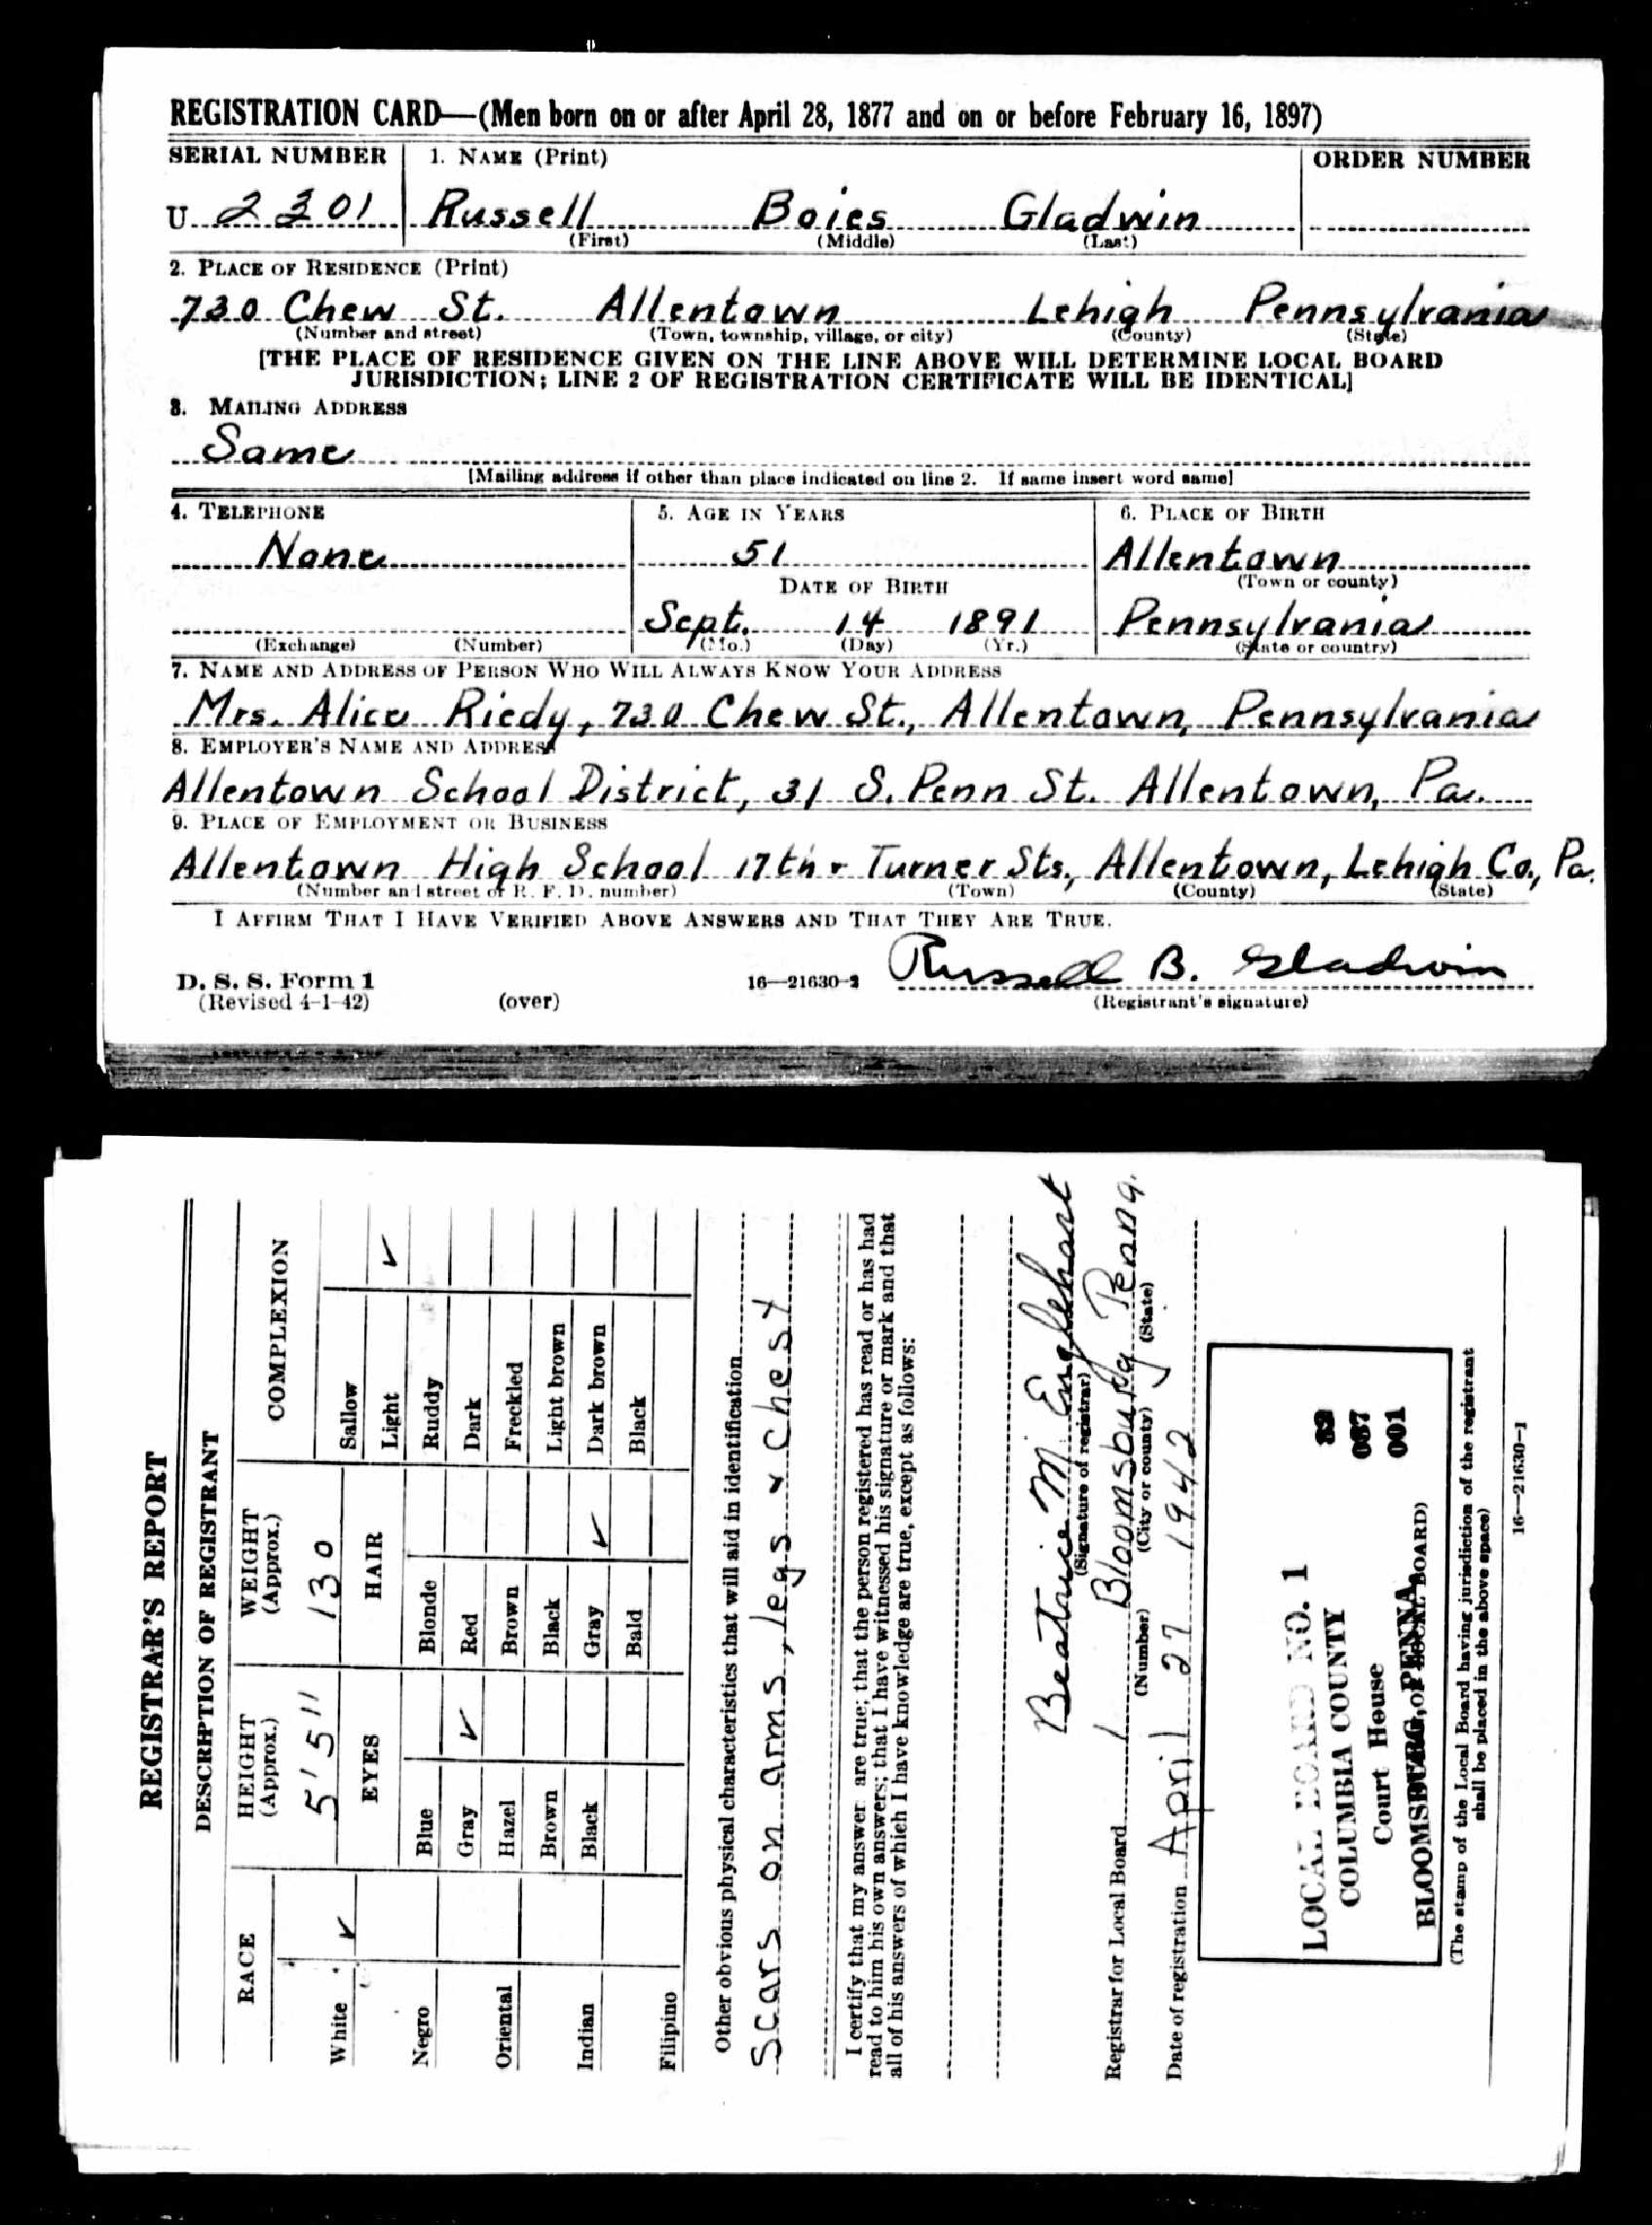 REGISTRATION CARD—(Men born on or after April 28, 1877 and on or before February 16, 1897)
SERIAL NUMBER 1. NAME (Print) ORDER NUMBER
U 2301 Russell Boies Gladwin
(First) (Middle) (Last)
2. PLACE OF RESIDENCE (Print)
730 Chew St. Allentown Lehigh Pennsylvania
(Number and street) (Town, township, village, or city) (County) (State)
[THE PLACE OF RESIDENCE GIVEN ON THE LINE ABOVE WILL DETERMINE LOCAL BOARD
JURISDICTION; LINE 2 OF REGISTRATION CERTIFICATE WILL BE IDENTICAL]
3. MAILING ADDRESS
Same
[Mailing address if other than place indicated on line 2. If same insert word same]
4. TELEPHONE 5. AGE IN YEARS 6. PLACE OF BIRTH
None 51 Allentown
DATE OF BIRTH (Town or county)
Sept. 14 1891 Pennsylvania
(Exchange) (Number) (Mo.) (Day) (Yr.) (State or country)
7. NAME AND ADDRESS OF PERSON WHO WILL ALWAYS KNOW YOUR ADDRESS
Mrs. Alice Riedy, 730 Chew St., Allentown, Pennsylvania
8. EMPLOYER'S NAME AND ADDRESS
Allentown School District, 31 S. Penn St. Allentown, Pa.
9. PLACE OF EMPLOYMENT OR BUSINESS
Allentown High School 17th & Turner Sts, Allentown, Lehigh Co., Pa.
(Number and street or R. F. D. number) (Town) (County) (State)
I AFFIRM THAT I HAVE VERIFIED ABOVE ANSWERS AND THAT THEY ARE TRUE.
Russell B. Gladwin
D. S. S. Form 1 16—21630-2
(Revised 4-1-42) (over) (Registrant's signature)
REGISTRAR'S REPORT
DESCRIPTION OF REGISTRANT
RACE HEIGHT (Approx.) WEIGHT (Approx.) COMPLEXION
5' 5" 130
EYES HAIR
White ✓
Negro
Oriental
Indian
Filipino
Blue
Gray ✓
Hazel
Brown
Black
Blonde
Red
Brown
Black
Gray ✓
Bald
Sallow
Light ✓
Ruddy
Dark
Freckled
Light brown
Dark brown
Black
Other obvious physical characteristics that will aid in identification
Scars on arms, legs & chest
I certify that my answer are true; that the person registered has read or has had
read to him his own answers; that I have witnessed his signature or mark and that
all of his answers of which I have knowledge are true, except as follows:
Beatrice M. Englehart
(Signature of registrar)
Registrar for Local Board 1 Bloomsburg Penna.
(Number) (City or county) (State)
Date of registration April 27 1942
LOCAL BOARD NO. 1
COLUMBIA COUNTY
Court House
BLOOMSBURG, PENNA.
001
(The stamp of the Local Board having jurisdiction of the registrant
shall be placed in the above space)
16—21630-1